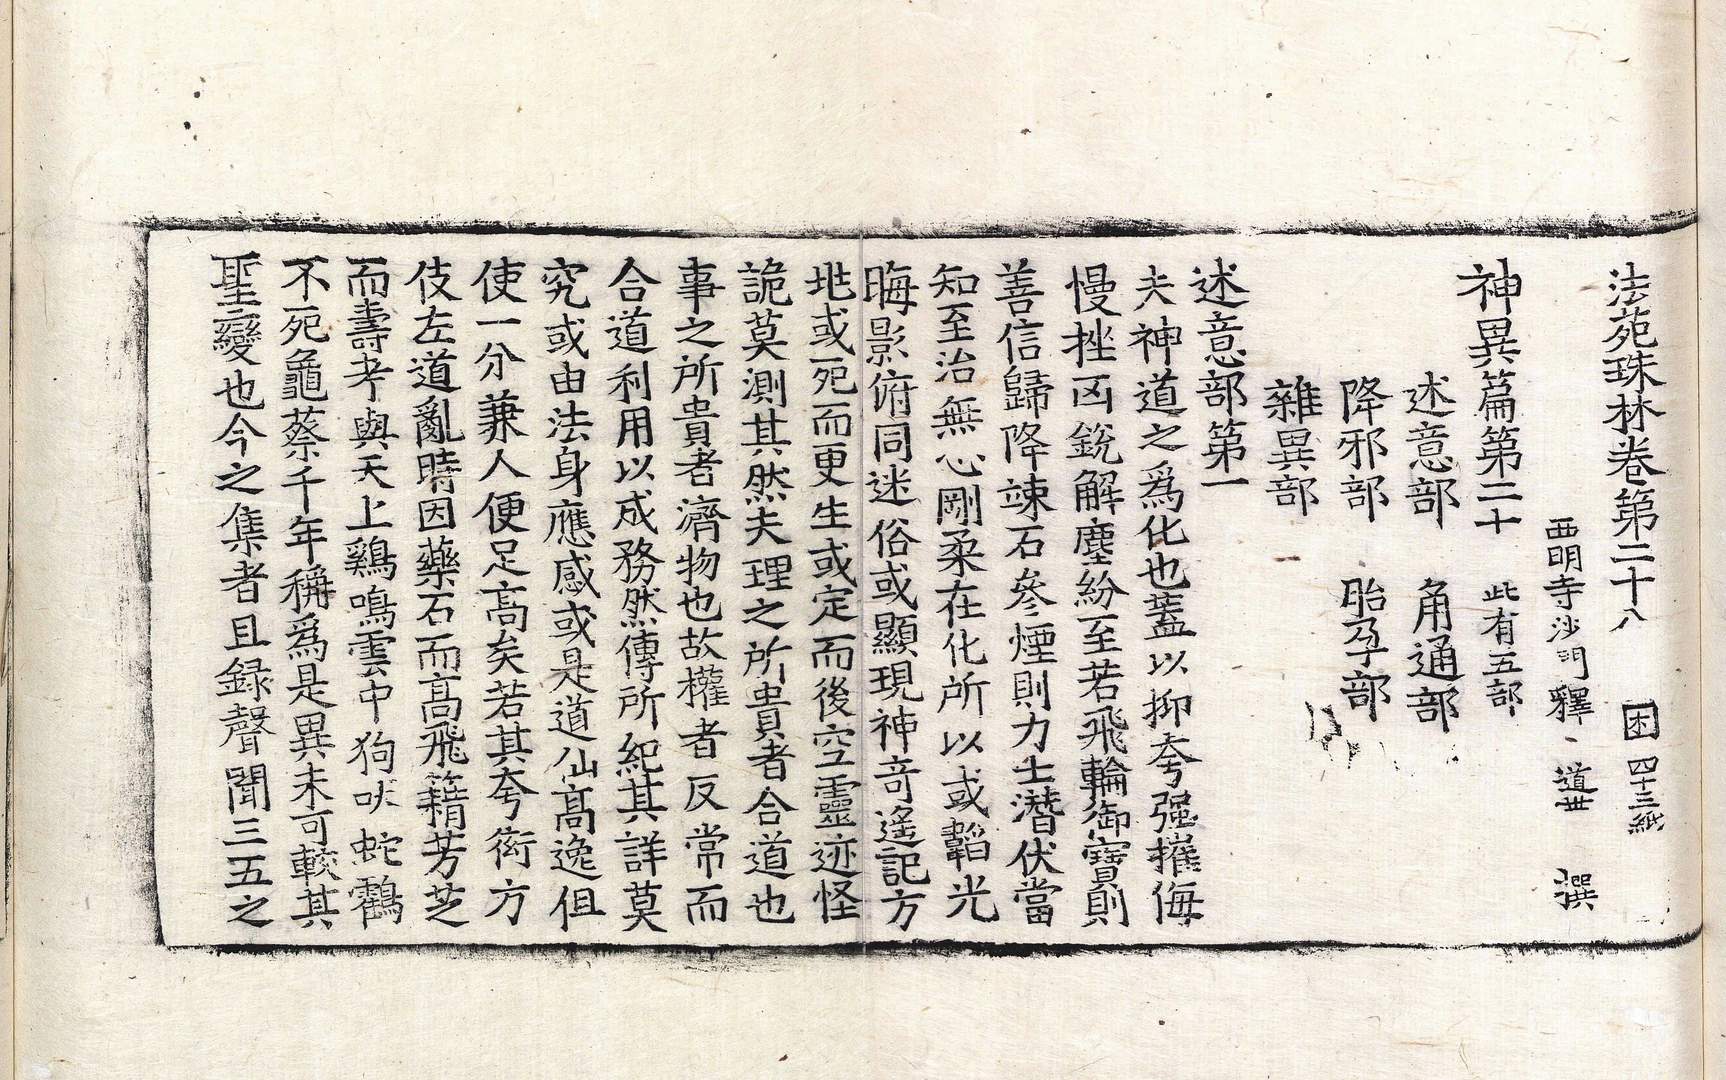 法苑珠林卷第二十八 困 四十三紙
西明寺沙門釋道世 撰
神異篇第二十 此有五部
述意部 角通部
降邪部 胎孕部
雜異部
述意部第一
夫神道之爲化也蓋以抑夸强摧侮
慢挫凶銳解塵紛至若飛輪御寶則
善信歸降竦石參煙則力士潛伏當
知至治無心剛柔在化所以或韜光
晦影俯同迷俗或顯現神奇遙記方
兆或死而更生或定而後空靈迹怪
詭莫測其然夫理之所貴者合道也
事之所貴者濟物也故權者反常而
合道利用以成務然傳所紀其詳莫
究或由法身應感或是道仙高逸但
使一分兼人便足高矣若其夸衒方
伎左道亂時因藥石而高飛藉芳芝
而壽考與天上鷄鳴雲中狗吠蛇鶴
不死龜蔡千年稱爲是異未可較其
聖變也今之集者且録聲聞三五之